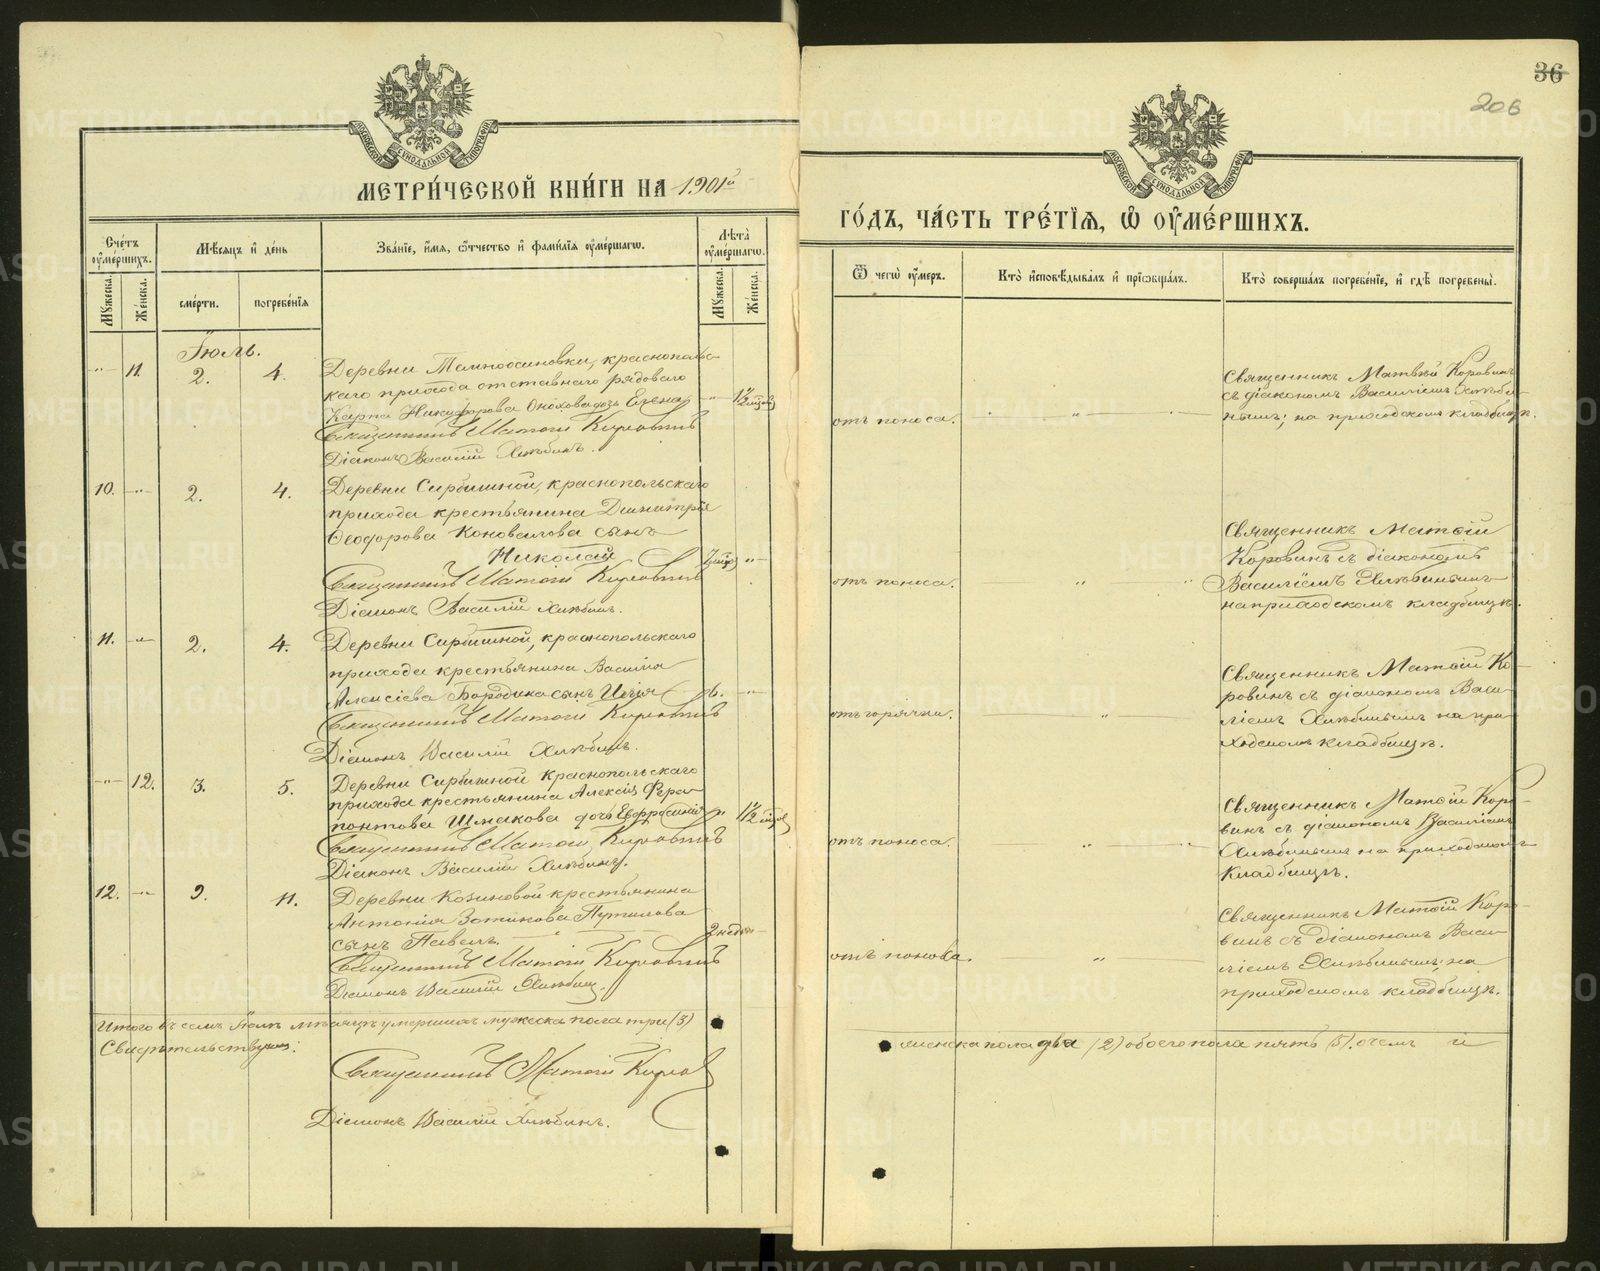 36
206
МОСКОВСКОЙ СѴНОДАЛЬНОЙ ТИПОГРАФІИ
МОСКОВСКОЙ СѴНОДАЛЬНОЙ ТИПОГРАФІИ
МЕТРИ́ЧЕСКОЙ КНИ́ГИ НА 1901й
ГО́ДЪ, ЧА́СТЬ ТРЕ́ТІЯ, Ѽ ОУ҆МЕ́РШИХЪ.
Сче́тъ оу҆ме́ршихъ.
Мѣ́сяцъ и҆ де́нь
Зва́ніе, и҆́мя, ѻ҆́тчество и҆ фами́лія оу҆ме́ршагѡ.
Лѣ́та оу҆ме́ршагѡ.
Ѿ чегѡ̀ оу҆́меръ.
Кто̀ и҆сповѣ́дывалъ и҆ прїѡбща́лъ.
Кто̀ соверша́лъ погребе́ніе, и҆ гдѣ̀ погребены̀.
Му́жеска.
Же́нска.
сме́рти.
погребе́нія
Му́жеска.
Же́нска.
Іюль.
-"- 11. 2. 4. Деревни Темноосиновки, краснопольс-
каго прихода отставнаго рядоваго
Карпа Никифорова дочь Елена -"- 1½ мѣсяц
Священникъ Матѳій Коровинъ
Діаконъ Василій Хлѣбинъ.
отъ поноса. - " -
Священникъ Матѳій Коровинъ
съ діакономъ Василіемъ Хлѣби-
нымъ; на приходскомъ кладбищѣ.
10. -"- 2. 4. Деревни Сирбишной, краснопольскаго
прихода крестьянина Димитрія
Ѳеодорова Коновалова сынъ
Николай -"-
Священникъ Матѳій Коровинъ
Діаконъ Василій Хлѣбинъ.
отъ поноса. - " -
Священникъ Матѳій
Коровинъ съ діакономъ
Василіемъ Хлѣбинымъ
на приходскомъ кладбищѣ.
11. -"- 2. 4. Деревни Сирбишной, краснопольскаго
прихода крестьянина Василія
Алексіева Бородина сынъ Илія 6. -"-
Священникъ Матѳій Коровинъ
Діаконъ Василій Хлѣбинъ.
отъ горячки. - " -
Священникъ Матѳій Ко-
ровинъ съ діакономъ Васи-
ліемъ Хлѣбинымъ на при-
ходскомъ кладбищѣ.
-"- 12. 3. 5. Деревни Сирбишной Краснопольскаго
прихода крестьянина Алексія Фера-
понтова Шмакова дочь Евфросинія " 1½ мѣсяц
Священникъ Матѳій Коровинъ
Діаконъ Василій Хлѣбинъ.
отъ поноса. - " -
Священникъ Матѳій Коро-
винъ съ діакономъ Василіемъ
Хлѣбинымъ на приходскомъ
кладбищѣ.
12. -"- 9. 11. Деревни Козиновой крестьянина
Антонія Зотикова Путилова
сынъ Павелъ. 2 нед. -"-
Священникъ Матѳій Коровинъ
Діаконъ Василій Хлѣбинъ.
отъ поноса. - " -
Священникъ Матѳій Коро-
винъ съ діакономъ Васи-
ліемъ Хлѣбинымъ; на
приходскомъ кладбищѣ.
Итого въ семъ Іюлѣ мѣсяцѣ умершихъ мужеска пола три (3)
женска пола два (2) обоего пола пять (5). о чемъ и
Свидѣтельствуемъ:
Священникъ Матѳій Коровинъ
Діаконъ Василій Хлѣбинъ.
METRIKI.GASO-URAL.RU